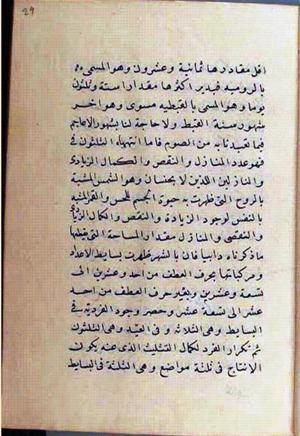 29
اقل مقادرها ثمانية وعشرون وهو المسمى
بالرومية فبدير اكثرها مقدار ستة وثلثون
يوما وهو المسمى بالقبطيه مسوى وهو اخر
شهور سنة القبط ولا حاجة لنا بشهور الاعاجم
فيما تقيدنا به من الصوم فاما انتهاء الثلثون فى
فهو عدد المنازل والنقص والكمال الزيادى
والمنازلين اللذين لا يحنسان وهو الشمس المشبة
بالروح التى ظهرت به حيوة الجسم للحس والقمر المشبه
بالنفس لوجود الزيادة والنقص والكمال الزيادى
والنقصى والمنازل مقدار المساحة التى يقطعها
ما ذكرناه دايبا فان بالشهر ظهرت بسايط الاعداد
ومركباتها بحرف العطف من احد وعشرين الى
تسعة وعشرين وبغير حرف العطف من احد
عشر الى تسعة عشر وحصر وجود الفردية فى
البسايط وهى الثلاثة و فى العقد وهى الثلثون
ثم تكرار الفرد لكمال التثليث الذى عنه يكون
الانتاج فى ثلثة مواضع وهى الثلثة فى البسايط